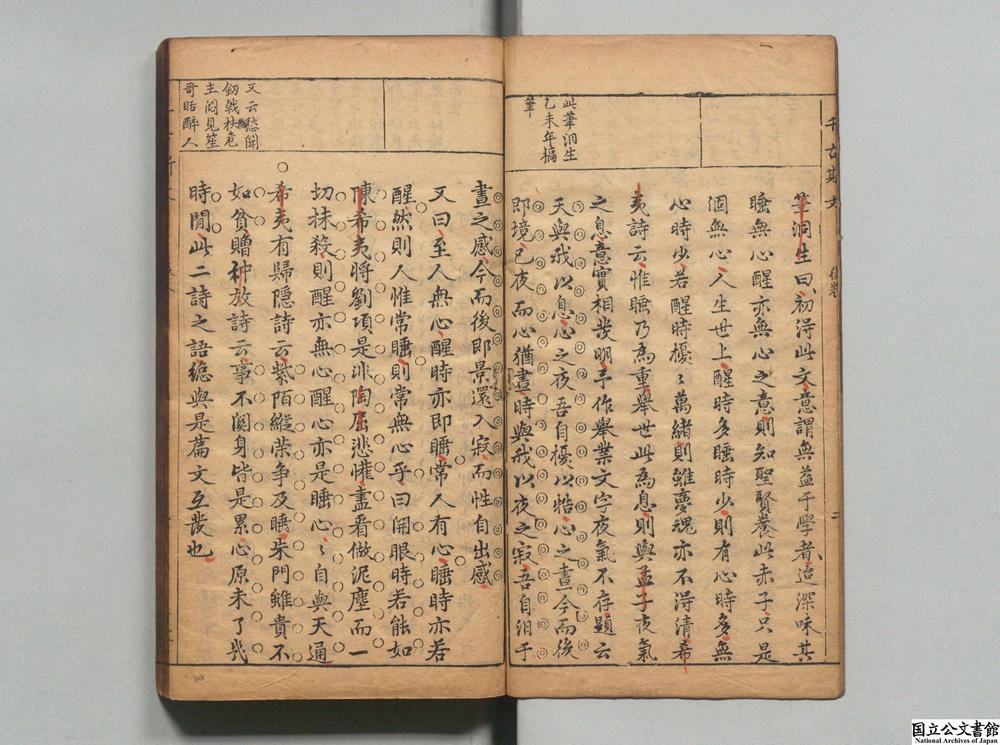 千古斯文 後卷 二
此筆洞生
乙未年搞
筆
筆洞生曰初淂此文意謂無益于學者迨深味其
睡無心醒亦無心之意則知聖賢養此赤子只是
個無心人生世上醒時多睡時少則有心時多無
心時少若醒時擾〻萬緒則雖夢魂亦不淂清希
夷詩云惟睡乃為重舉世此為息則與孟子夜氣
之息意實相發明予作舉業文字夜氣不存題云
天與我以息心之夜吾自擾以牿心之晝今而後
即境已夜而心猶晝時與我以夜之寂吾自汩于
晝之感今而後即景還入寂而性自出感
又曰至人無心醒時亦即睡常人有心睡時亦若
醒然則人惟常睡則常無心乎曰開眼時若能如
陳希夷將劉項是非陶屈悲懽盡看做泥塵而一
切抹殺則醒亦無心醒心亦是睡心〻自與天通
希夷有歸隱詩云紫陌縱荣争及睡朱門雖貴不
如貧贈种放詩云事不関身皆是累心原未了幾
時閒此二詩之語總與是篇文互發也
又云愁聞
劒戟扶危
主悶見笙
哥聒醉人
国立公文書館
National Archives of Japan